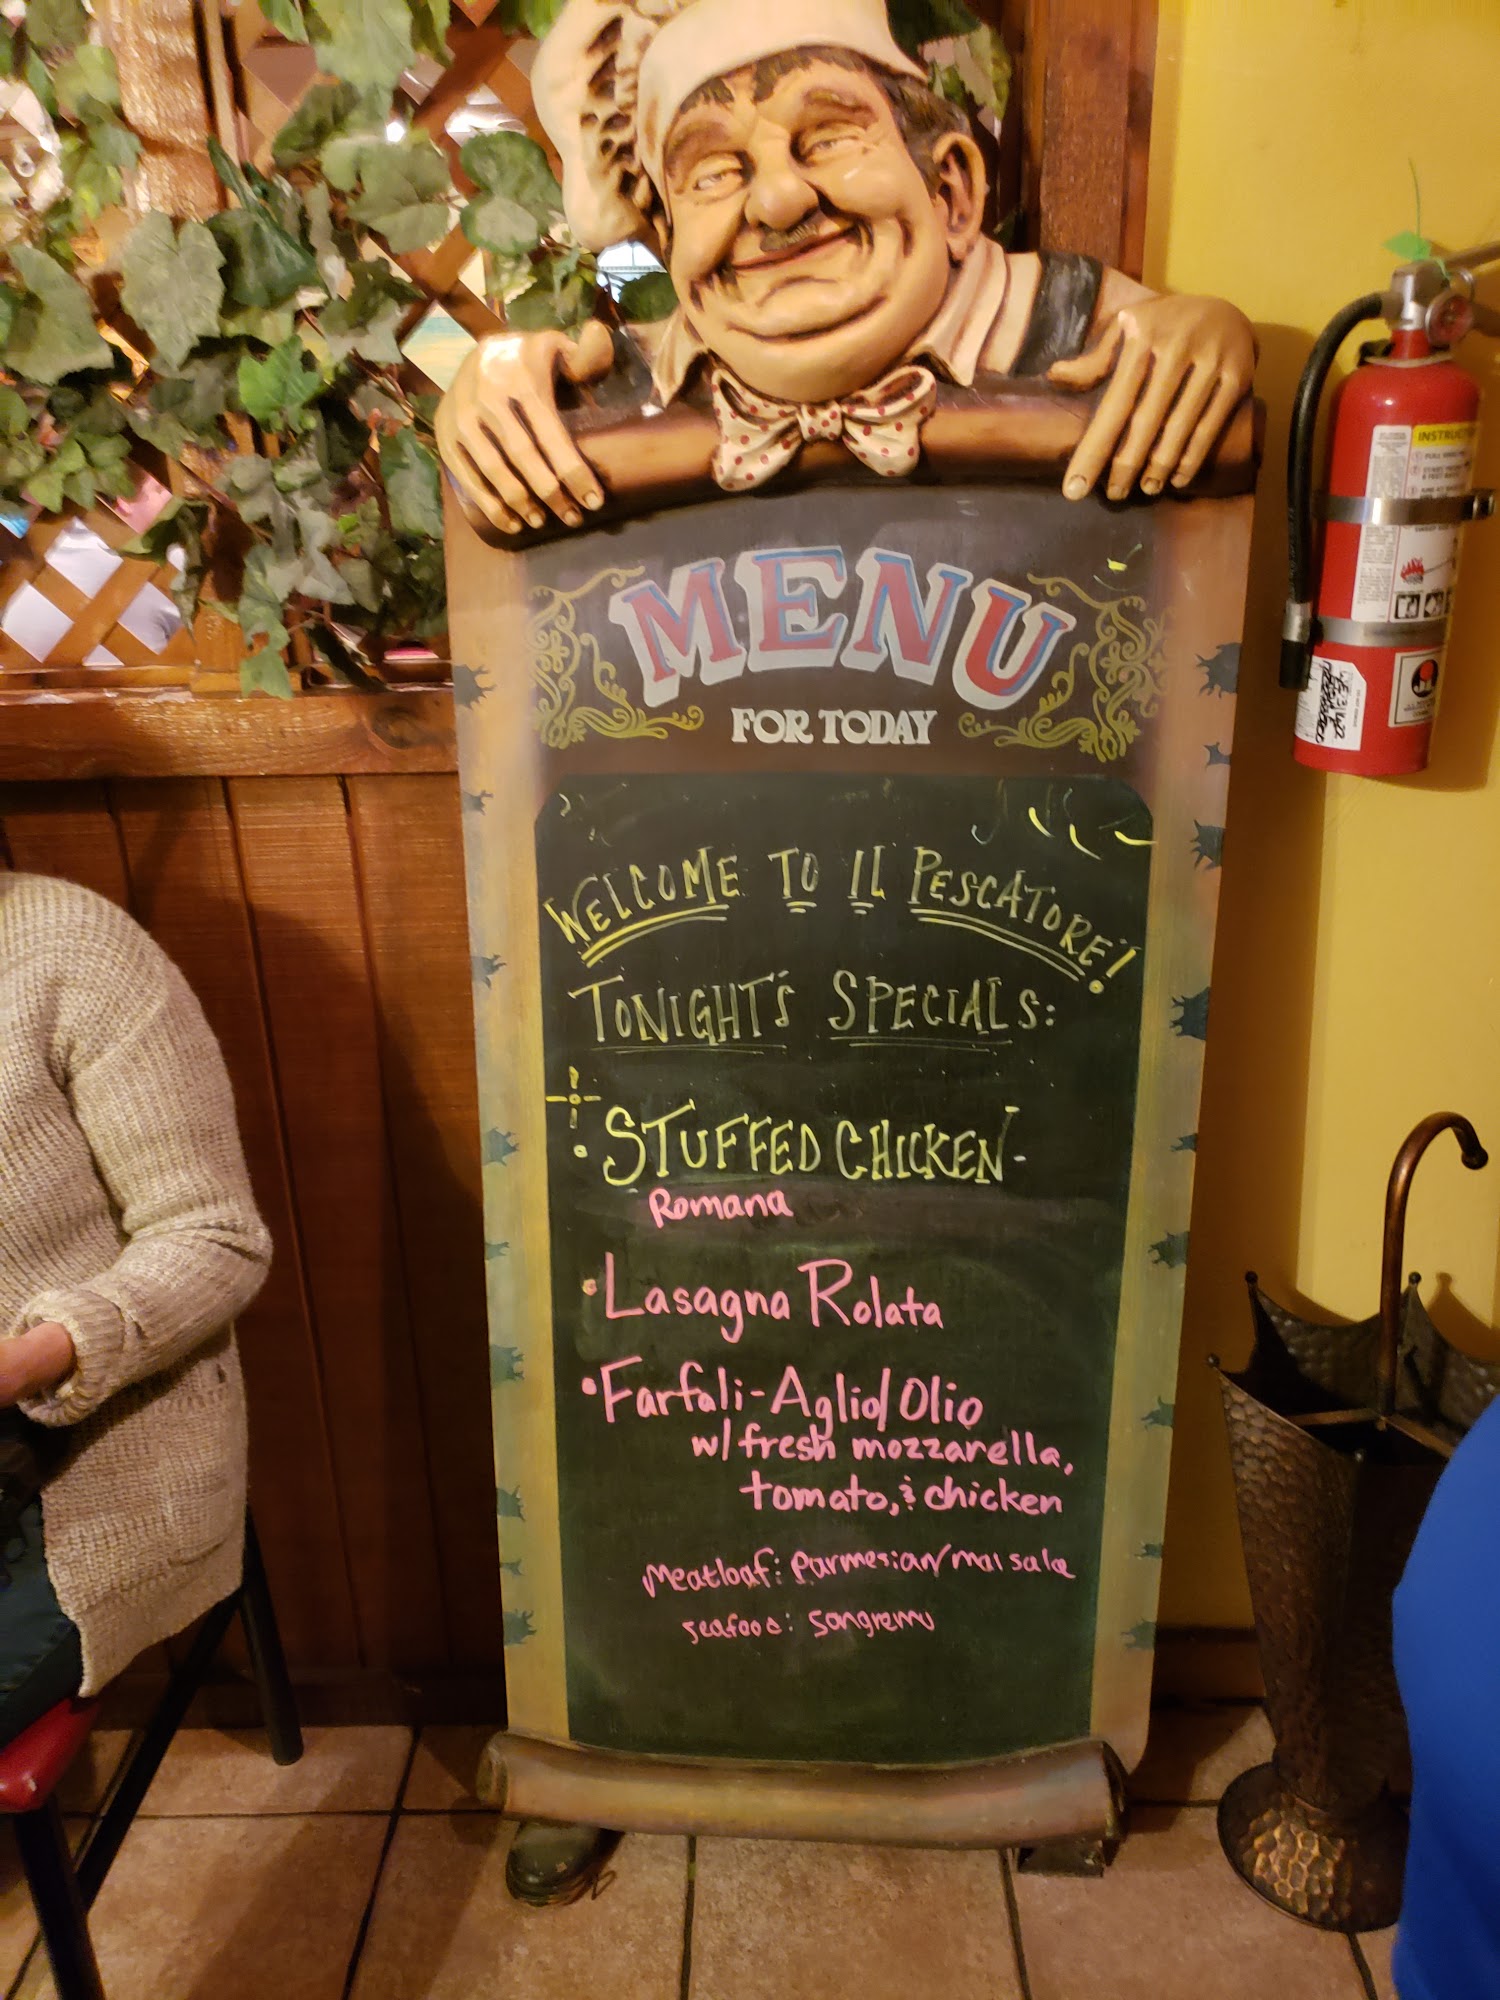 MENU
FOR TODAY
WELCOME TO IL PESCATORE!
TONIGHT'S SPECIALS:
STUFFED CHICKEN-
Romana
•Lasagna Rolata
•Farfali-Aglio/Olio
w/fresh mozzarella,
tomato, & chicken
Meatloaf: parmesian/marsala
seafood:
INSTRUCT